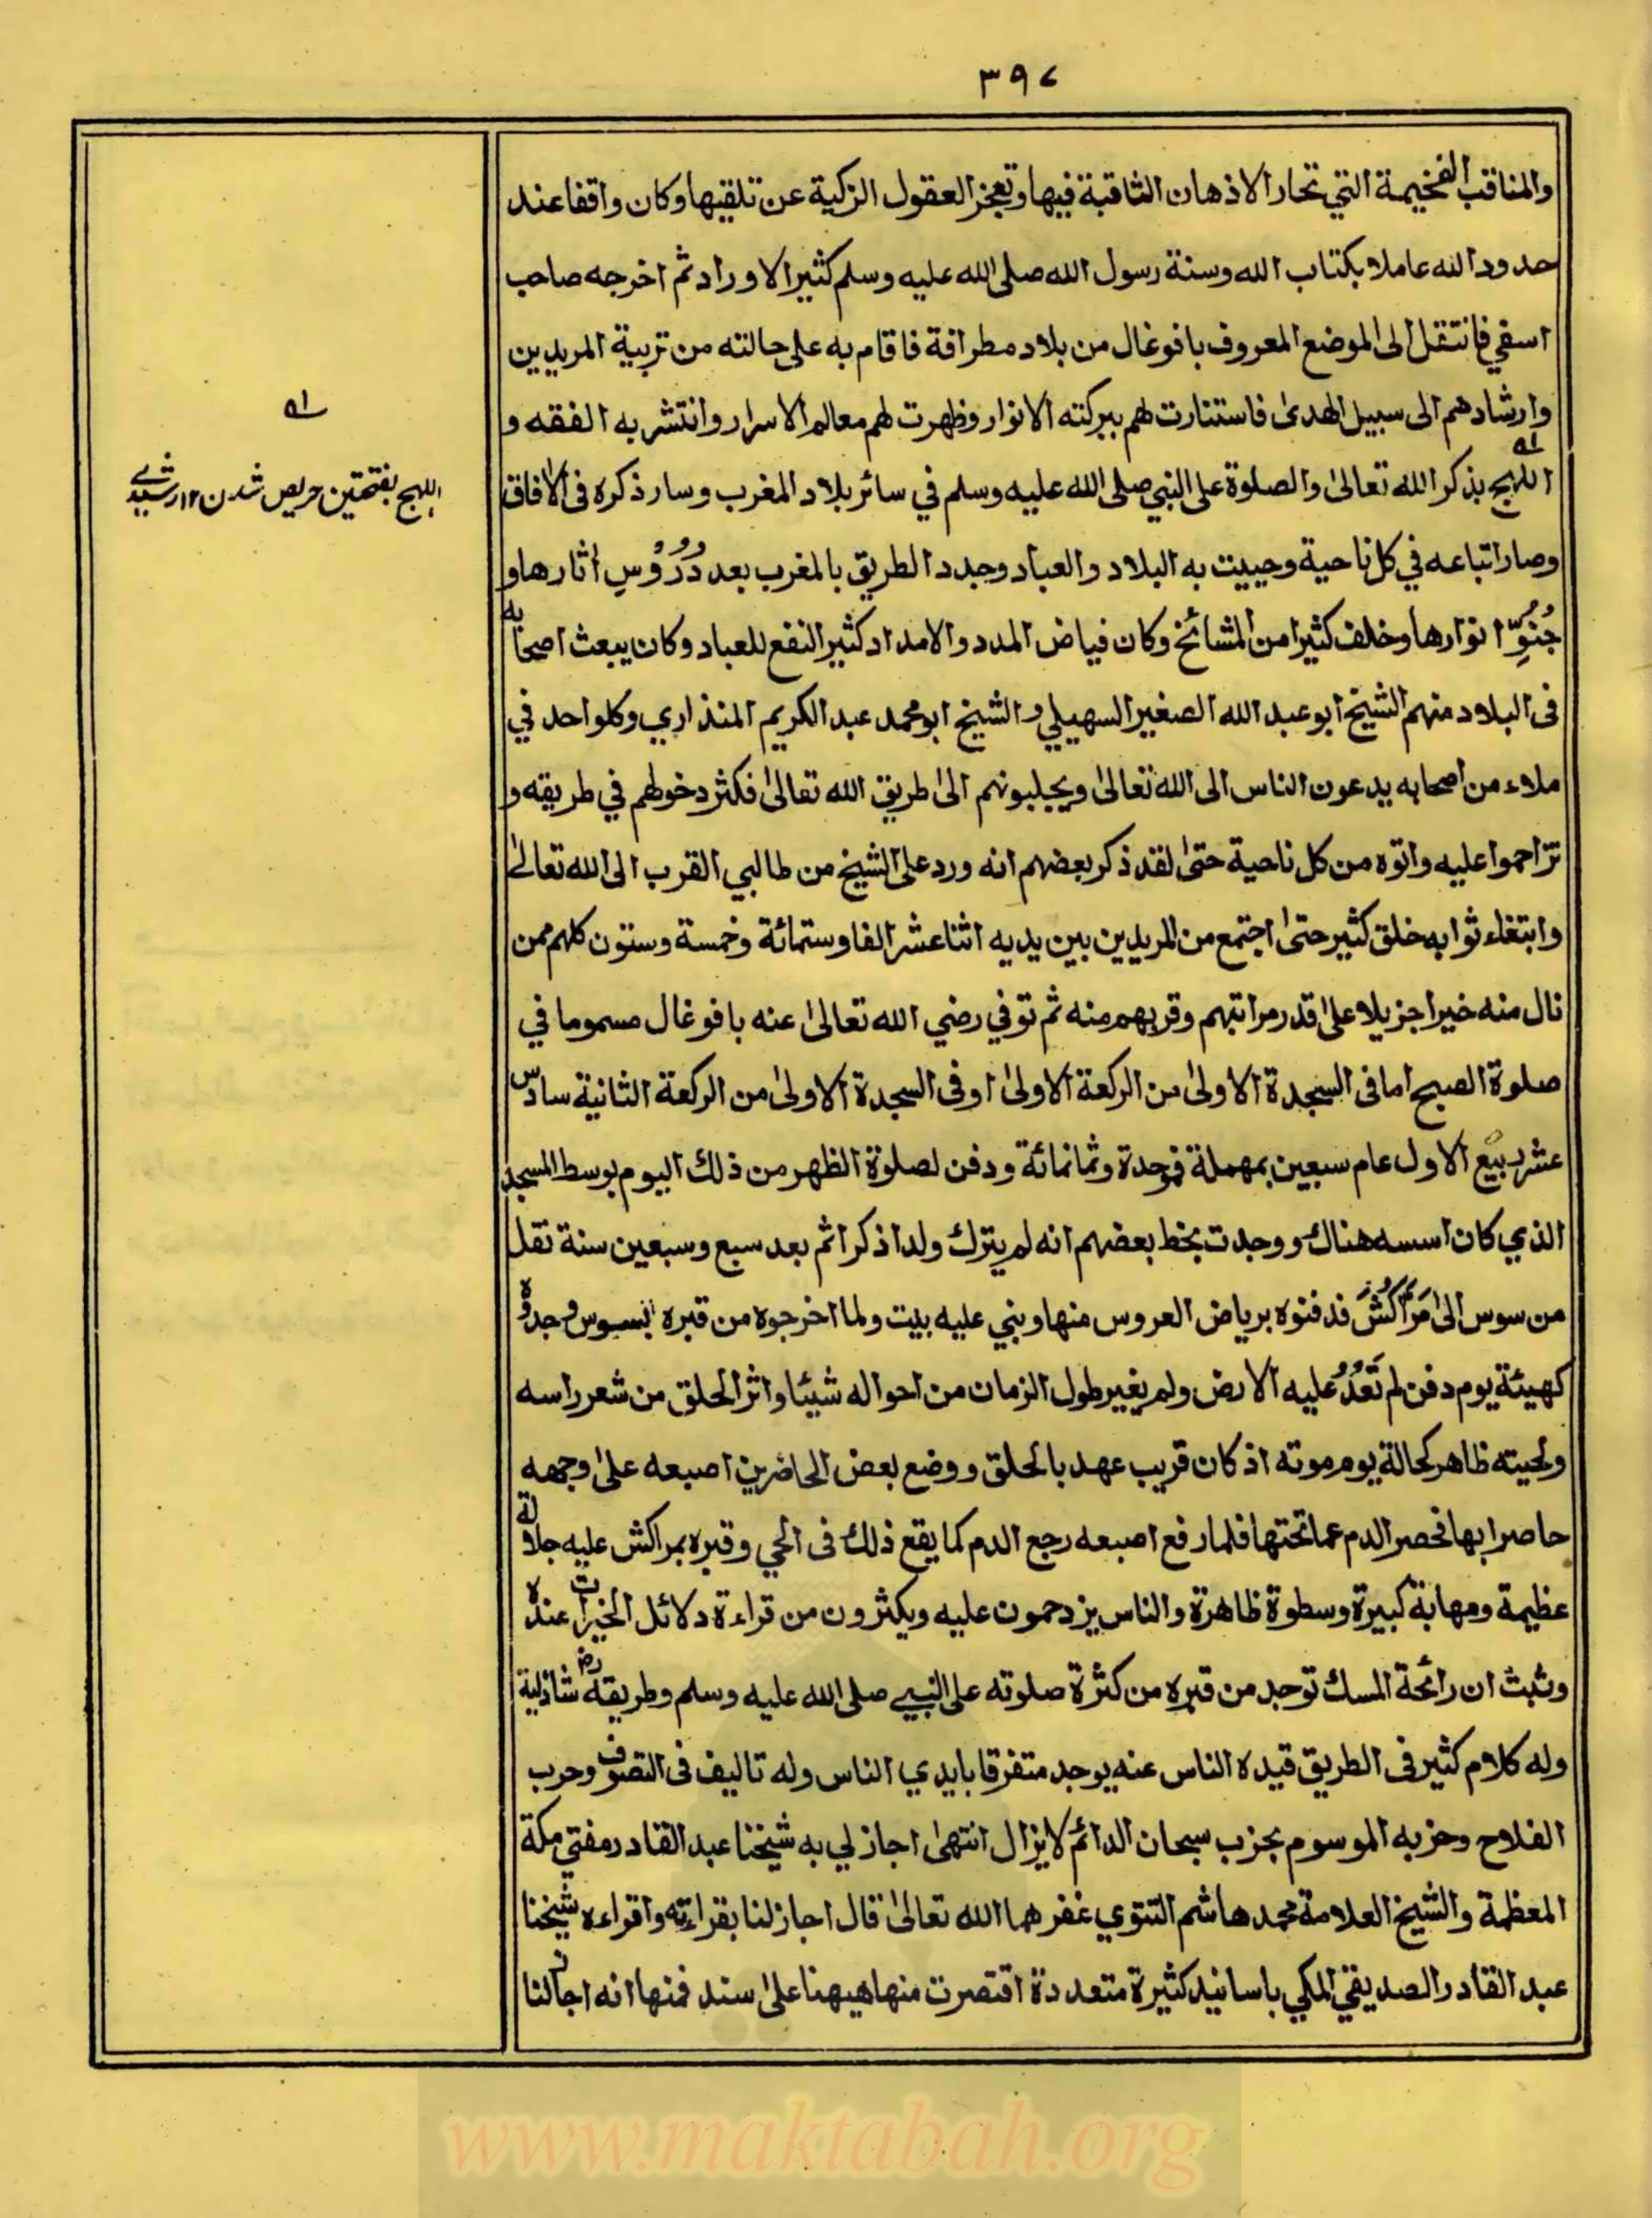 ٣٩٧
والمناقب الفخيمة التي تحار الاذهان الثاقبة فيها وتعجز العقول الزكية عن تلقيها وكان واقفا عند
حدود الله عاملا بكتاب الله وسنة رسول الله صلى الله عليه وسلم كثير الاوراد ثم اخرجه صاحب
اسقي فانتقل الى الموضع المعروف بافوغال من بلاد مطرافة فاقام به على حالته من تربية المريدين
وارشادهم الى سبيل الهدىٰ فاستنارت لهم ببركته الانوار وظهرت لهم معالم الاسرار وانتشر به الفقه و
اللهج بذكر الله تعالىٰ والصلوة على النبي صلى الله عليه وسلم في سائر بلاد المغرب وسار ذكره فى الافاق
وصار اتباعه في كل ناحية وحييت به البلاد والعباد وجدد الطريق بالمغرب بعد دُرُوْسِ اٰثارها و
خُنُوِّ انوارها وخلف كثيرا من المشائخ وكان فياض المدد والامداد كثير النفع للعباد وكان يبعث اصحابه
فى البلاد منهم الشيخ ابو عبد الله الصغير السهيلي والشيخ ابو محمد عبد الكريم المنذاري وكلواحد في
ملاء من اصحابه يدعون الناس الى الله تعالىٰ ويجلبونهم الىٰ طريق الله تعالىٰ فكثر دخولهم في طريقه و
تزاحموا عليه واتوه من كل ناحية حتىٰ لقد ذكر بعضهم انه ورد على الشيخ من طالبي القرب الى الله تعالىٰ
وابتغاء ثوابه خلق كثير حتىٰ اجتمع من المريدين بين يديه اثنا عشر الفا وستمائة وخمسة وستون كلهم ممن
نال منه خيرا جزيلا علىٰ قدر مراتبهم وقربهم منه ثم توفي رضي الله تعالىٰ عنه بافوغال مسموما في
صلوة الصبح اما فى السجدة الاولىٰ من الركعة الاولىٰ اوفى السجدة الاولىٰ من الركعة الثانية سادس
عشر ربيع الاول عام سبعين بمهملة فموحدة وثمانمائة ودفن لصلوة الظهر من ذلك اليوم بوسط المسجد
الذي كان اسسه هناك ووجدت بخط بعضهم انه لم يترك ولدا ذكرا ثم بعد سبع وسبعين سنة نقل
من سوس الىٰ مَرَّاكُشَ فدفنوه برياض العروس منها وبني عليه بيت ولما اخرجوه من قبره بسوس وجدوه
كهيئة يوم دفن لم تَعْدُ عليه الارض ولم يغير طول الزمان من احواله شيئا واثر الحلق من شعر راسه
ولحيته ظاهر كحالة يوم موته اذ كان قريب عهد بالحلق ووضع بعض الحاضرين اصبعه علىٰ وجهه
حاصرا بها فحصر الدم عما تحتها فلما رفع اصبعه رجع الدم كما يقع ذلك فى الحي وقبره بمراكش عليه جلالة
عظيمة ومهابة كبيرة وسطوة ظاهرة والناس يزدحمون عليه ويكثرون من قراءة دلائل الخيرات عنده
وثبت ان رائحة المسك توجد من قبره من كثرة صلوته على النبي صلى الله عليه وسلم وطريقه رض شاذلية
وله كلام كثير فى الطريق قيده الناس عنه يوجد متفرقا بايدي الناس وله تاليف فى التصوف وحرب
الفلاح وحزبه الموسوم بحزب سبحان الدائم لايزال انتهىٰ اجاز لي به شيخنا عبد القادر مفتي مكة
المعظمة والشيخ العلامة محمد هاشم التتوي غفر هما الله تعالىٰ قال اجاز لنا بقراءته واقراءه شيخنا
عبد القادر الصديقي المكي باسانيد كثيرة متعددة اقتصرت منها هيهنا علىٰ سند فمنها انه اجاز لنا
اللهج بفتحتين حريص شدن ١٢ رشيدي
www.maktabah.org